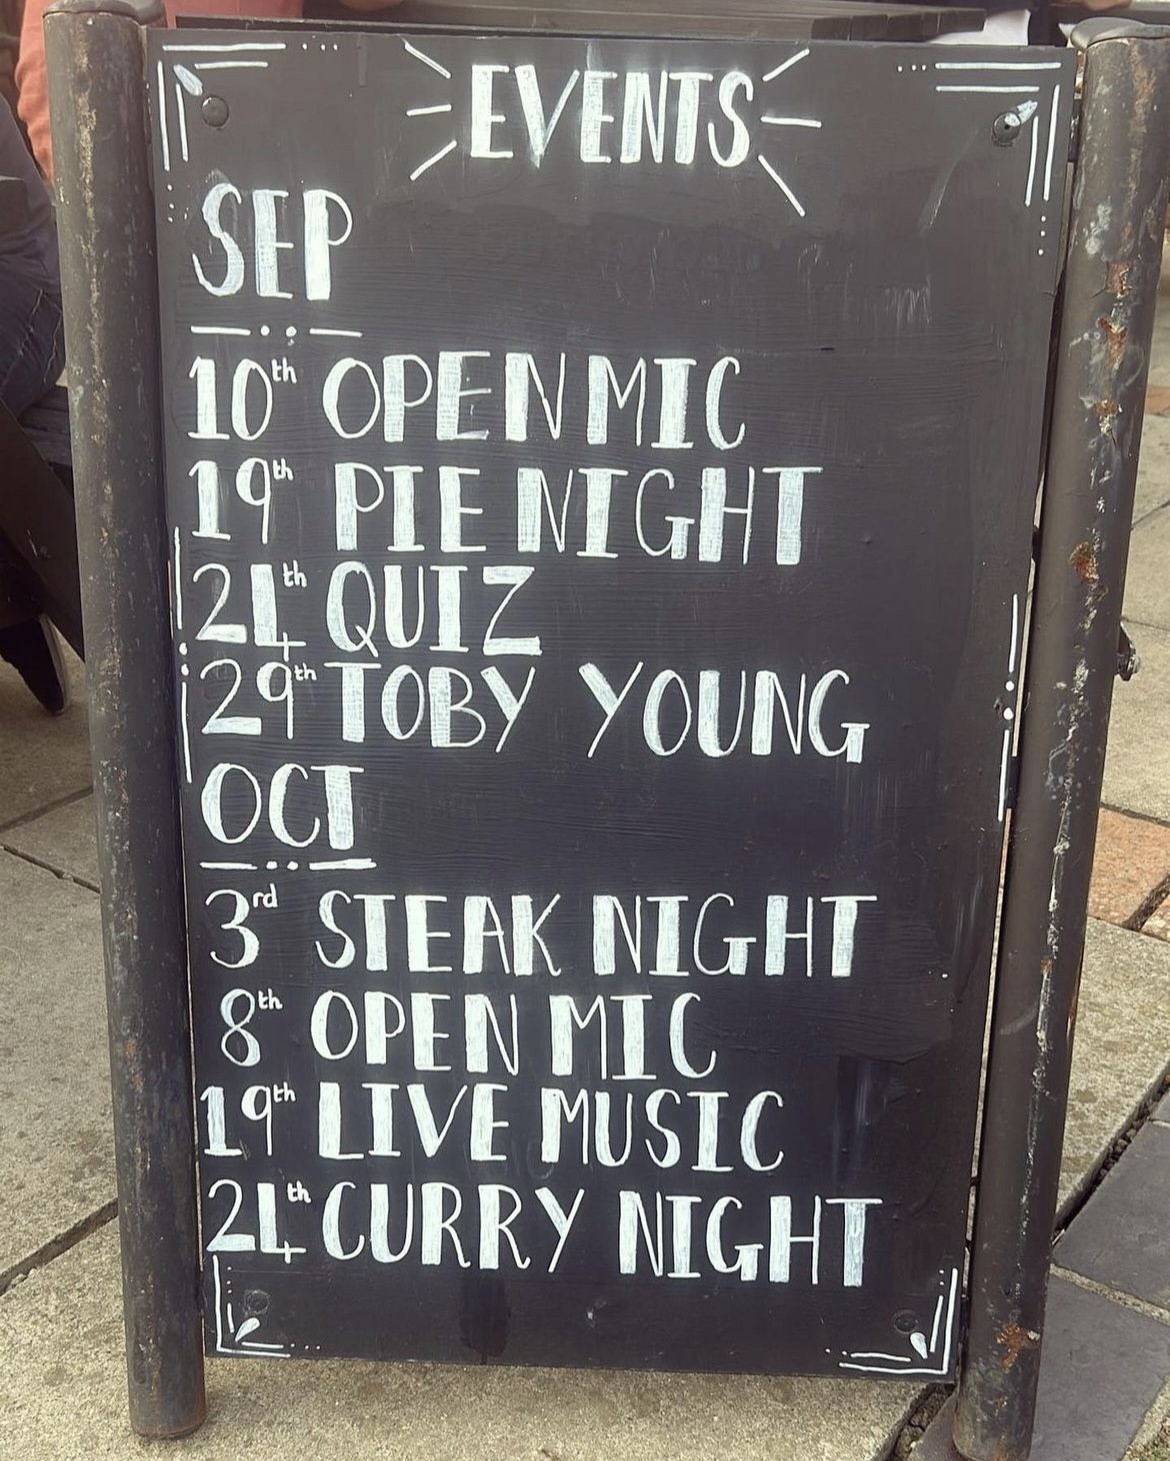 EVENTS
SEP
10th OPEN MIC
19th PIE NIGHT
24th QUIZ
29th TOBY YOUNG
OCT
3rd STEAK NIGHT
8th OPEN MIC
19th LIVE MUSIC
24th CURRY NIGHT